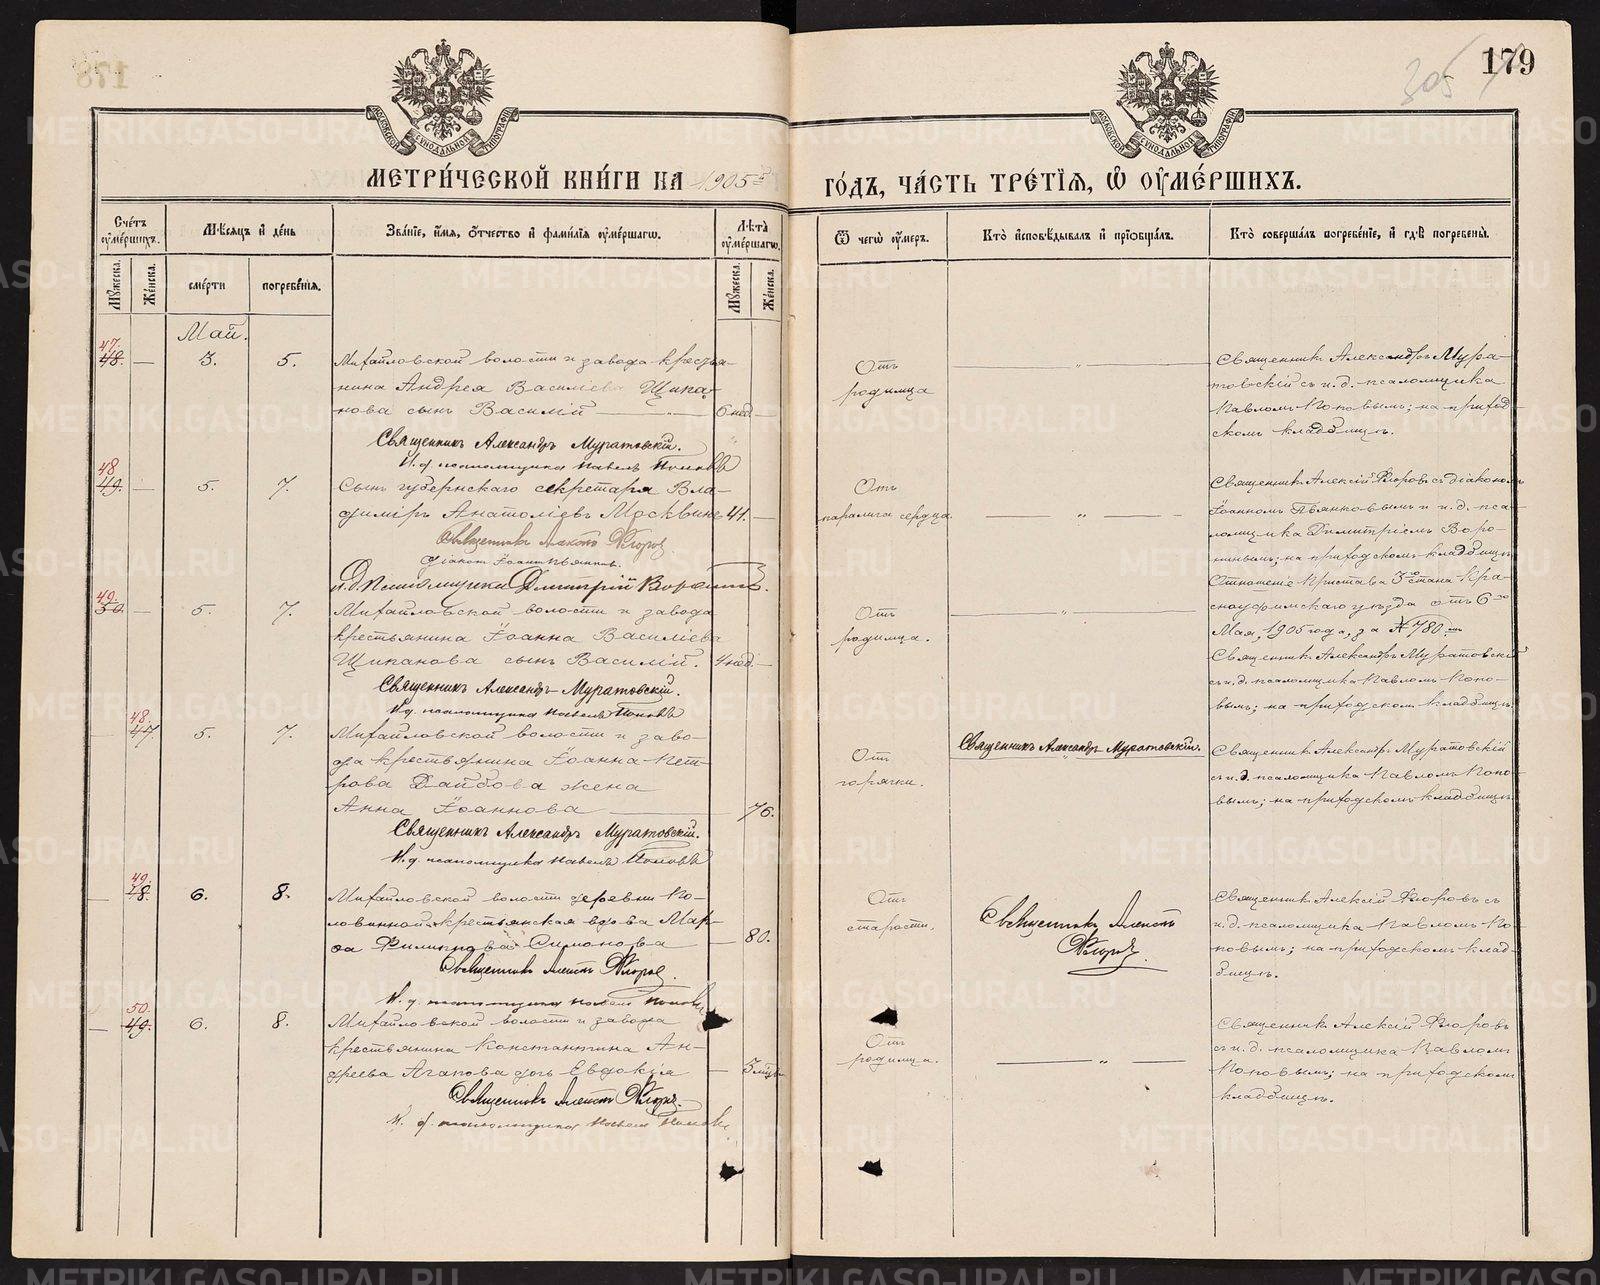 179
305
МЕТРИ́ЧЕСКОЙ КНИ́ГИ НА 1905й
ГО́ДЪ, ЧА́СТЬ ТРЕ́ТІЯ, Ѿ ОУМЕ́РШИХЪ.
Сче́тъ оуме́ршихъ.
Мѣсяцъ и де́нь
Зва́нїе, и́мя, ѻ́тчество и фами́лїя оуме́ршагѡ.
Лѣ̀та оуме́ршагѡ.
Ѿ чегѡ̀ оу́меръ.
Кто̀ и҆сповѣ́дывалъ и҆ прїѡбща́лъ.
Кто̀ соверша́лъ погребе́нїе, и҆ гдѣ̀ погребены̀.
Мꙋ́жеска.
Же́нска.
сме́рти
погребе́нїя.
Мꙋ́жеска.
Же́нска.
Май.
47.
48. — 3. 5.
Михайловской волости и завода крестья-
нина Андрея Василіева Щипа-
нова сынъ Василій — 6 нед. —
Священникъ Александръ Муратовскій.
И. д. псаломщика Павелъ Поповъ
Отъ
родимца
Священникъ Александръ Мура-
товскій съ и. д. псаломщика
Павломъ Поповымъ; на приход-
скомъ кладбищѣ.
48
49. — 5. 7.
Сынъ губернскаго секретаря Вла-
димиръ Анатоліевъ Москвинъ 41. —
Священникъ Алексій Флоровъ
Діаконъ Іоаннъ Пьянковъ.
и. д. Псаломщика Димитрій Воронинъ.
Отъ
паралича сердца.
Священникъ Алексій Флоровъ съ діакономъ
Іоанномъ Пьянковымъ и и. д. пса-
ломщика Димитріемъ Воро-
нинымъ; на приходскомъ кладбищѣ
Отношеніе Пристава 3го стана Кра-
сноуфимскаго уѣзда отъ 6го
Мая, 1905 года, за № 780мъ
49.
50. — 5. 7.
Михайловской волости и завода
крестьянина Іоанна Василіева
Щипанова сынъ Василій. 4 нед. —
Священникъ Александръ Муратовскій.
И. д. псаломщика Павелъ Поповъ
Отъ
родимца.
Священникъ Александръ Муратовскій
съ и. д. псаломщика Павломъ Попо-
вымъ; на приходскомъ кладбищѣ.
48
— 47. 5. 7.
Михайловской волости и заво-
да крестьянина Іоанна Пет-
рова жена
Анна Іоаннова — 76.
Священникъ Александръ Муратовскій.
И. д. псаломщика Павелъ Поповъ
Отъ
горячки.
Священникъ Александръ Муратовскій.
Священникъ Александръ Муратовскій
съ и. д. псаломщика Павломъ Попо-
вымъ; на приходскомъ кладбищѣ
49.
— 48. 6. 8.
Михайловской волости деревни По-
ловинной крестьянская вдова Мар-
ѳа Филиппова Симонова — 80.
Священникъ Алексій Флоровъ.
И. д. псаломщика Павелъ Поповъ
Отъ
старости.
Священникъ Алексій
Флоровъ.
Священникъ Алексій Флоровъ съ
и. д. псаломщика Павломъ По-
повымъ; на приходскомъ клад-
бищѣ.
50.
— 49. 6. 8.
Михайловской волости и завода
крестьянина Константина Ан-
дреева Агапова дочь Евдокія — 3 мѣс.
Священникъ Алексій Флоровъ.
И. д. псаломщика Павелъ Поповъ
Отъ
родимца.
Священникъ Алексій Флоровъ
съ и. д. псаломщика Павломъ
Поповымъ; на приходскомъ
кладбищѣ.
METRIKI.GASO-URAL.RU